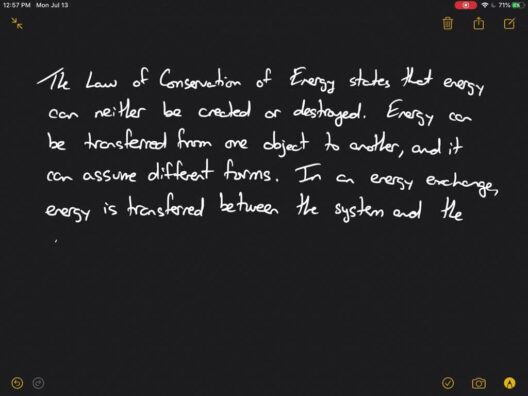 12:57 PM Mon Jul 13 71%
The Law of Conservation of Energy states that energy
can neither be created or destroyed. Energy can
be transferred from one object to another, and it
can assume different forms. In an energy exchange,
energy is transferred between the system and the